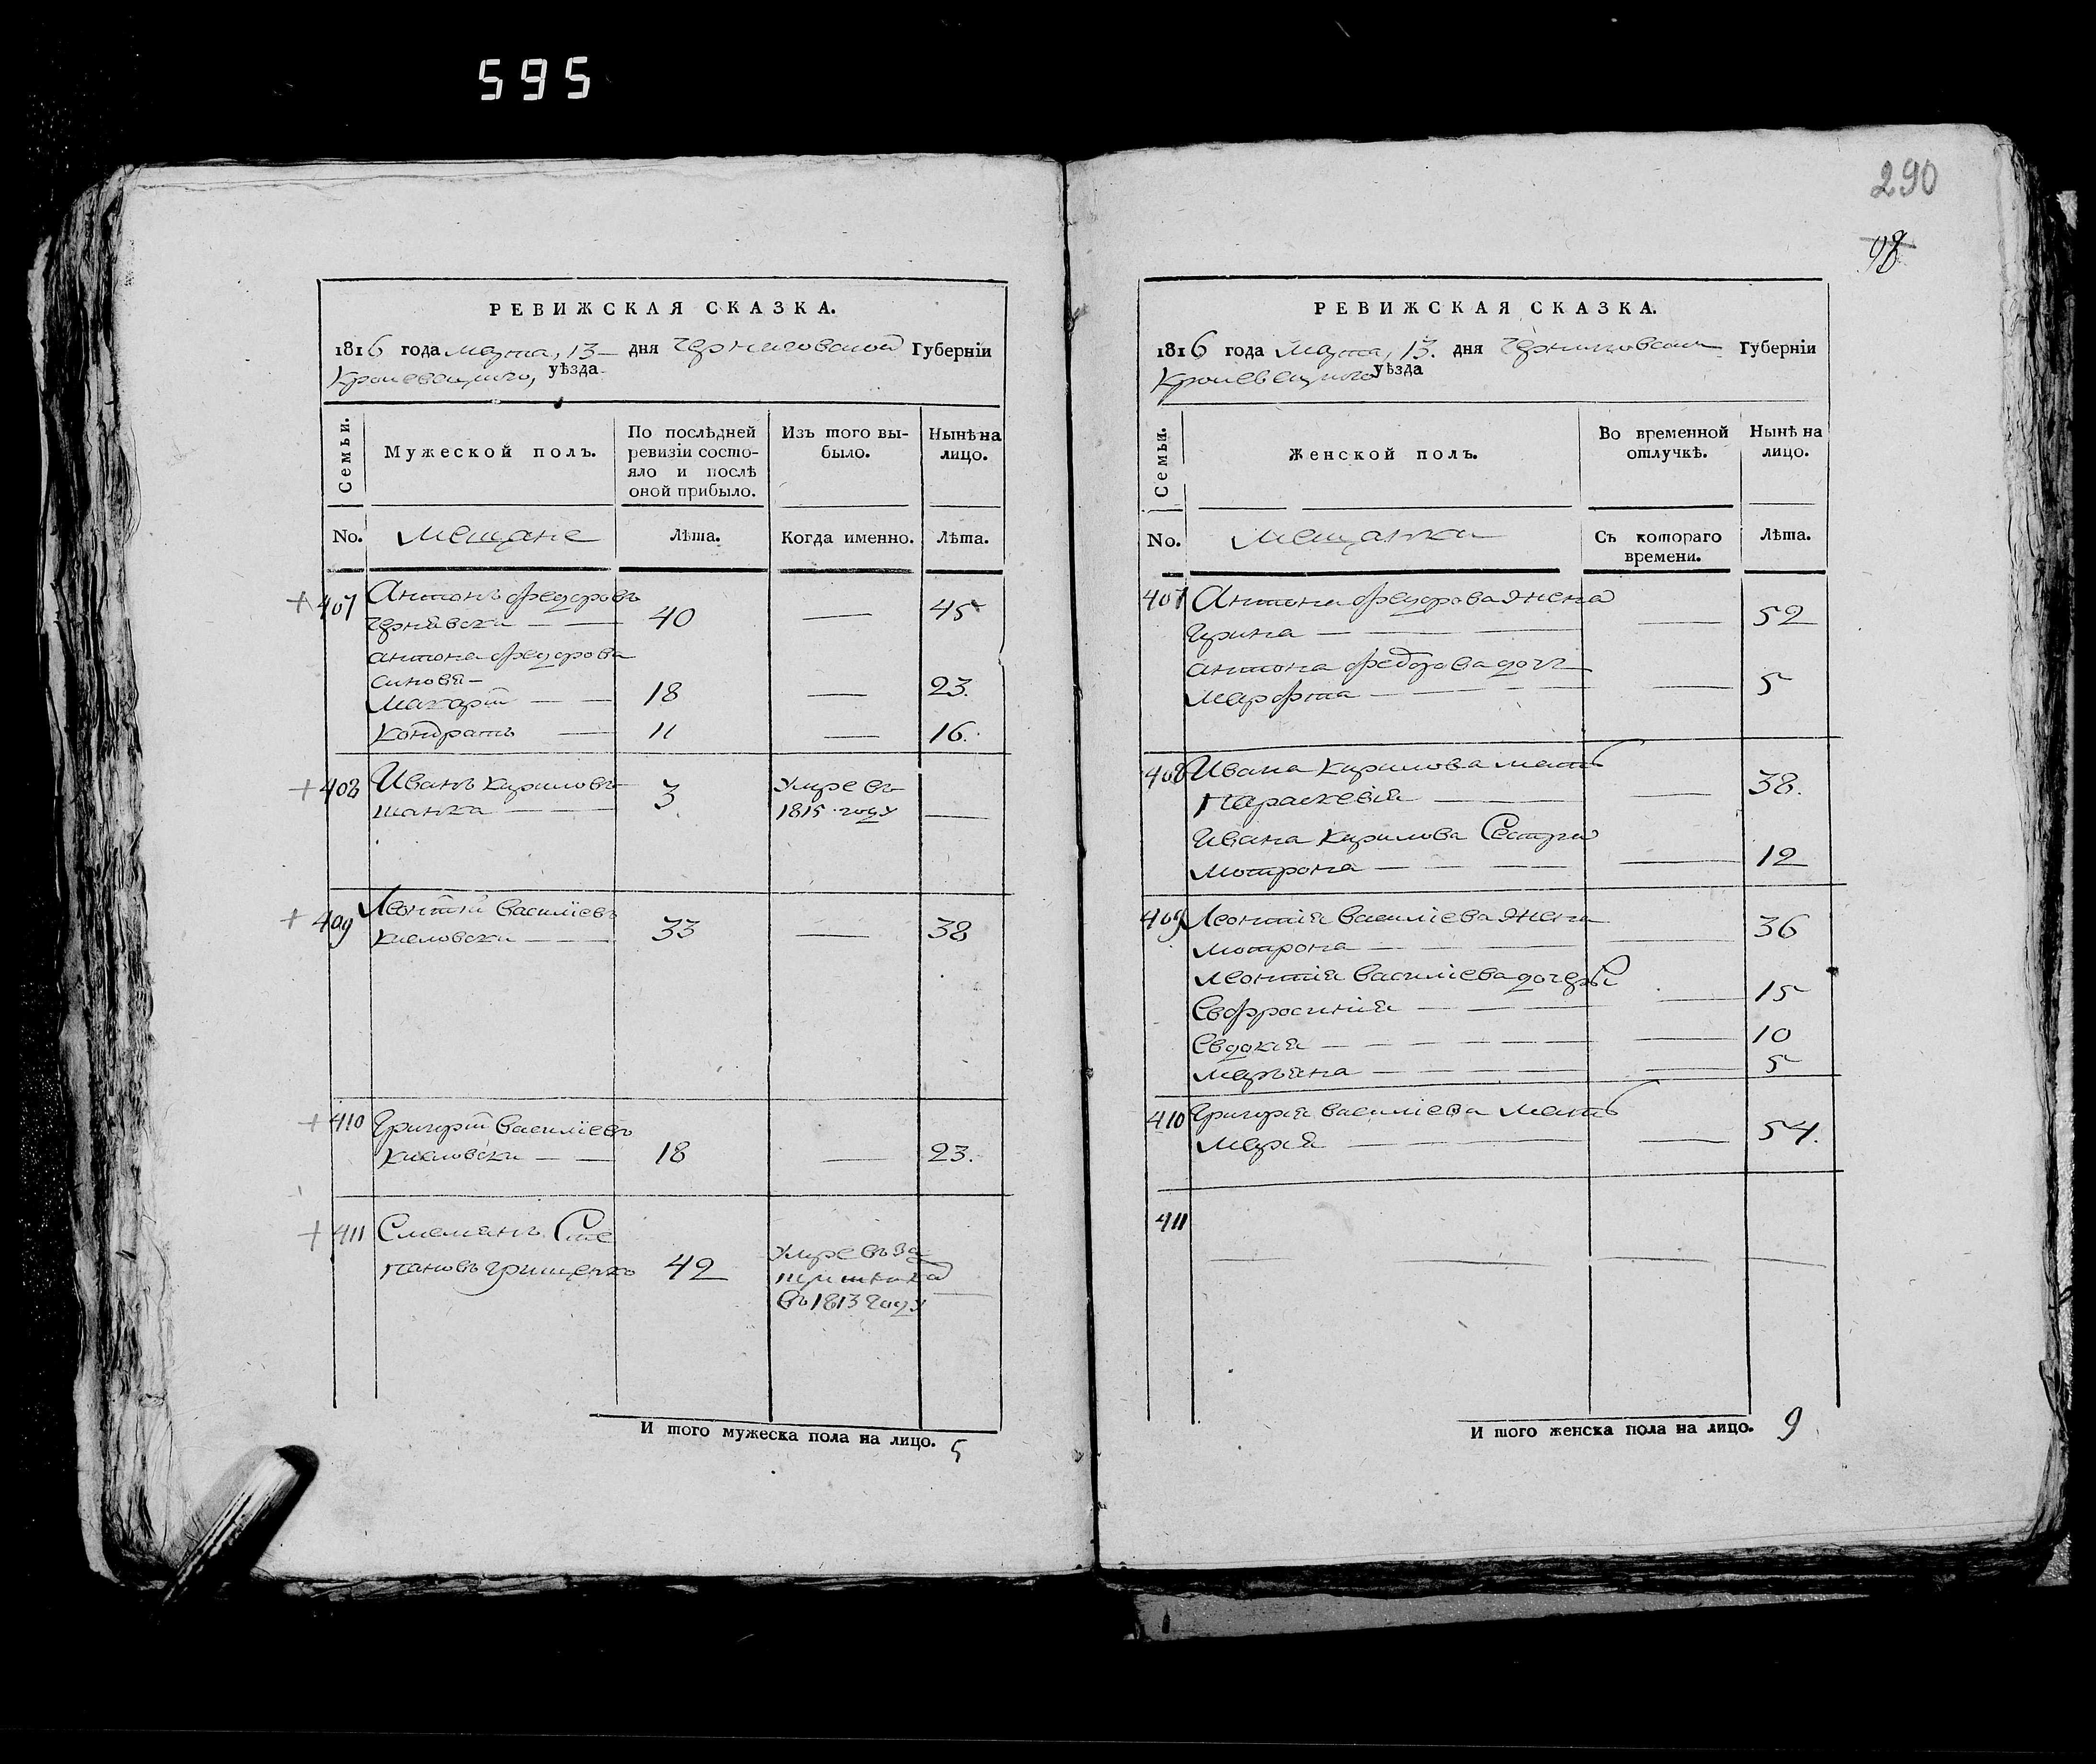 595
290
98
РЕВИЖСКАЯ СКАЗКА.
1816 года марта, 13 дня Черниговской Губерніи
Кролевецкого, уѣзда
Семьи.
Мужеской полъ.
По послѣдней ревизіи состо-
яло и послѣ
оной прибыло.
Изъ того вы-
было.
Нынѣ на
лицо.
No.
мещане
Лѣта.
Когда именно.
Лѣта.
+ 407 Антонъ Федоровъ
Чернявски — 40 — 45
Антона Федорова
синовя —
Макарій — 18 — 23.
Кондратъ — 11 — 16.
+ 408 Иванъ Кириловъ
3 Умре въ
1815 году —
+ 409 Леонтій Василіевъ
33 — 38
+ 410 Григорій Василіевъ
18 — 23.
+ 411 Сте
пановъ Грищенко 42 Умре
въ 1813 году —
И того мужеска пола на лицо. 5
РЕВИЖСКАЯ СКАЗКА.
1816 года Марта, 13. дня Черниговской Губерніи
Кролевецкого уѣзда
Семьи.
Женской полъ.
Во временной
отлучкѣ.
Нынѣ на
лицо.
No.
мещанки
Съ котораго
времени.
Лѣта.
407 Антона Федорова жена
Ирина — — 52
Антона Федорова доч
Марфта — — 5
408 Ивана Кирилова мать
Параскевія — — 38.
Ивана Кирилова Сестра
Мотрона — — 12
409 Леонтія Василіева жена
Мотрона — — 36
Леонтія Василіева дочери
Евфросинія — — 15
Евдокія — — 10
Маръяна — — 5
410 Григорія Василіева мать
Марія — — 54.
411
— — — —
И того женска пола на лицо. 9